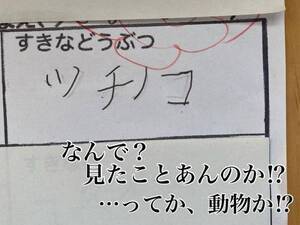 すきなどうぶつ
ツチノコ
なんで?
見たことあんのか!?
…ってか、動物か!?